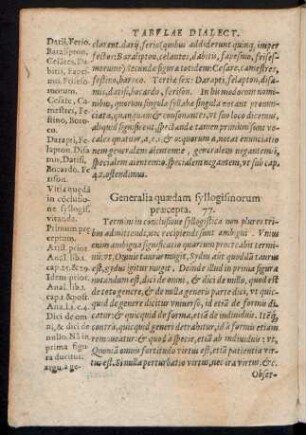 TABVLAE DIALECT.
Darii, Ferio.
Baralipton,
Celantes, Da
bitis, Fapes
mo, Frisesso
morum.
Cesare, Ca
mestres, Fes
tino, Baroco.
Darapti, Fe
lapton, Dis
amis, Datisi,
Bocardo, Fe
rison.
Vitia quædã
in cõclusio
ne syllogis.
vitanda.
Primum per
ceptum.
Arist. prim.
Anal. lib. 1.
Idem prior.
Anal. lib. 1.
Dici de om
ni, & dici de
nullo.
prima figu
larent. darij, ferio; quibus addiderunt quinq; imper
fectos: Baralipton, celantes, dabitis, fapesmo, frises-
somorum: secundæ figuræ totidem: Cesare, camestres,
festino, baroco. Tertiæ sex: Darapti, felapton, disa-
mis, datisi, bocardo, ferison. In his modorum nomini
bus, quorum singulæ syllabæ singula notant pronun
ciata, quanquam & consonantes, vt suo loco dicemus,
aliquid significent: spectandæ tamen primùm sunt vo
cales quatuor, a, e, i & o: quarum a, notat enunciatio
nem generalem aientem: e, generalem negantem: i,
specialem aientem: o, specialem negantem, vt sub cap.
42. ostendimus.
Generalia quædam syllogismorum
præcepta. 77.
Termini in conclusione syllogistica non plures tri
bus admittendi, nec recipiendi sunt ambigui. Vnius
enim ambigua significatio quartum procreabit termi
num: vt, Omnis taurus mugit, Sydus aũt quoddã taurus
est, sydus igitur mugit. Deinde illud in prima figura
notandum est, dici de omni, & dici de nullo, quod est
de toto genere, & de nulla generis parte dici, vt quic-
quid de genere dicitur vniuerso, id etiã de formis di
catur; & quicquid de forma, etiã de indiuiduo. Itẽq́;
contrà, quicquid generi detrahitur, id à formis etiam
remoueatur: & quod à specie, etiã ab indiuiduis: vt,
Quoniã omnis fortitudo virtus est, etiã patientia vir
tus est: Si nulla perturbatio virtus, nec ira virtus est.
Obser-